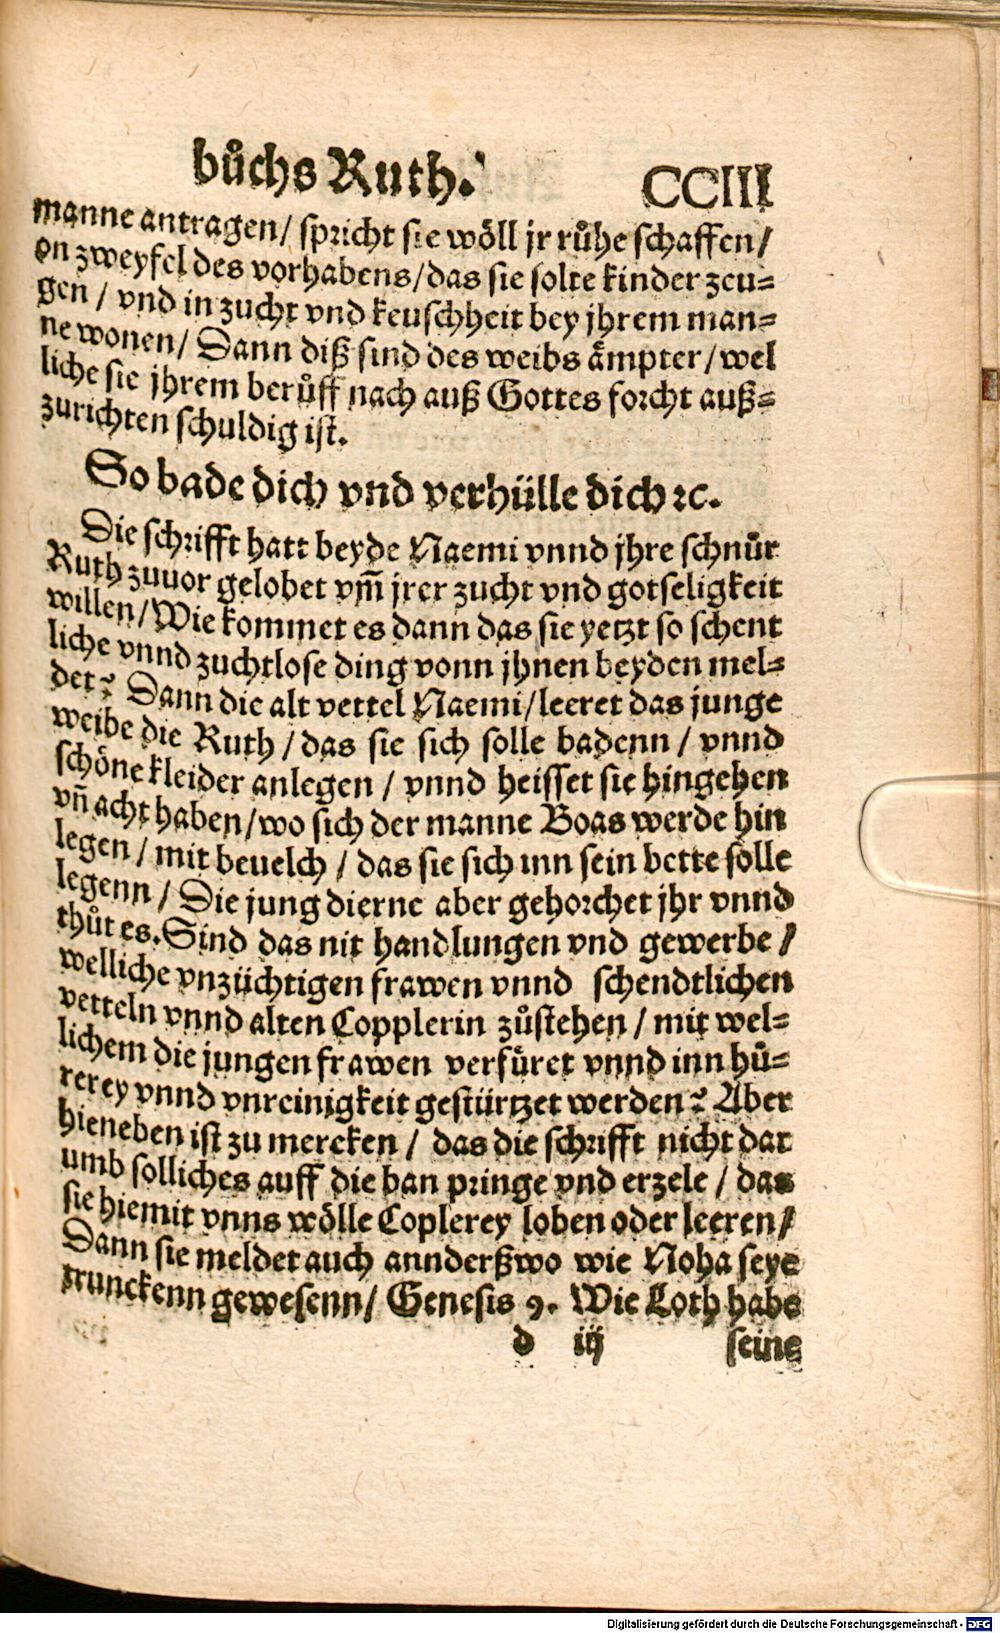 bůchs Ruth. CCIII
manne antragen/ spricht sie wöll jr růhe schaffen/
on zweyfel des vorhabens/das sie solte kinder zeu-
gen / vnd in zucht vnd keuschheit bey jhrem man-
ne wonen/ Dann diß sind des weibs ämpter/wel
liche sie jhrem berůff nach auß Gottes forcht auß-
zurichten schuldig ist.
So bade dich vnd verhülle dich ꝛc.
Die schrifft hatt beyde Naemi vnnd jhre schnůr
Ruth zuuor gelobet vm̃ jrer zucht vnd gotseligkeit
willen/Wie kommet es dann das sie yetzt so schent
liche vnnd zuchtlose ding vonn jhnen beyden mel-
det? Dann die alt vettel Naemi/leeret das junge
weibe die Ruth / das sie sich solle badenn / vnnd
schöne kleider anlegen / vnnd heisset sie hingehen
vñ acht haben/wo sich der manne Boas werde hin
legen / mit beuelch / das sie sich inn sein bette solle
legenn / Die jung dierne aber gehorchet jhr vnnd
thůt es. Sind das nit handlungen vnd gewerbe /
welliche vnzüchtigen frawen vnnd schendtlichen
vetteln vnnd alten Copplerin zůstehen / mit wel-
lichem die jungen frawen verfüret vnnd inn hů-
rerey vnnd vnreinigkeit gestürtzet werden? Aber
hieneben ist zu mercken / das die schrifft nicht dar
umb solliches auff die ban pringe vnd erzele / das
sie hiemit vnns wölle Coplerey loben oder leeren/
Dann sie meldet auch annderßwo wie Noha seye
trunckenn gewesenn/ Genesis 9. Wie Loth habe
d iij seine
Digitalisierung gefördert durch die Deutsche Forschungsgemeinschaft - DFG